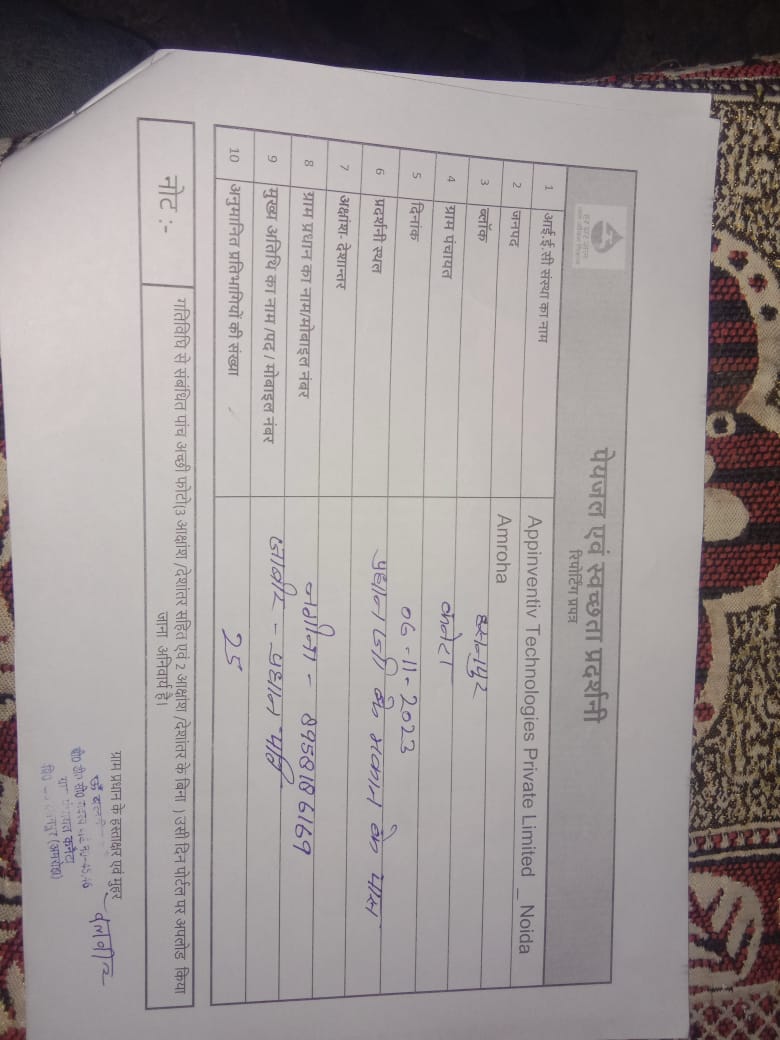 पेयजल एवं स्वच्छता प्रदर्शनी
रिपोर्टिंग प्रपत्र
1 आई.ई.सी संस्था का नाम Appinventiv Technologies Private Limited _ Noida
2 जनपद Amroha
3 ब्लॉक हसनपुर
4 ग्राम पंचायत कनेटा
5 दिनांक 06-11-2023
6 प्रदर्शनी स्थल प्रधान जी के मकान के पास
7 अक्षांश- देशान्तर
8 ग्राम प्रधान का नाम/मोबाइल नंबर नगीना - 8958186169
9 मुख्य अतिथि का नाम /पद / मोबाइल नंबर - प्रधान पति
10 अनुमानित प्रतिभागियों की संख्या 25
नोट :- गतिविधि से संबंधित पांच अच्छी फोटो(3 आक्षांश /देशांतर सहित एवं 2 आक्षांश /देशांतर के बिना ) उसी दिन पोर्टल पर अपलोड किया
जाना अनिवार्य है।
ग्राम प्रधान के हस्ताक्षर एवं मुहर
कनेटा
(अमरोहा)